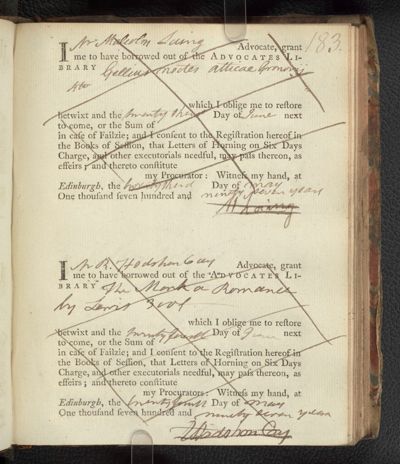 183.
I Mr Malcolm Laing Advocate, grant
me to have borrowed out of the ADVOCATES LI-
BRARY Gellius Noctes Atticae Gronovij
4to
which I oblige me to restore
betwixt and the twenty third Day of June next
to come, or the Sum of
in case of Failzie; and I consent to the Registration hereof in
the Books of Session, that Letters of Horning on Six Days
Charge, and other executorials needful, may pass thereon, as
effeirs; and thereto constitute
my Procurator: Witness my hand, at
Edinburgh, the twenty third Day of may
One thousand seven hundred and ninety seven years
M Laing
I Mr R. Hodshon Cay Advocate, grant
me to have borrowed out of the ADVOCATES LI-
BRARY The Monk a Romance
by Lewis 3 vol
which I oblige me to restore
betwixt and the twenty fourth Day of June next
to come, or the Sum of
in case of Failzie; and I consent to the Registration hereof in
the Books of Session, that Letters of Horning on Six Days
Charge, and other executorials needful, may pass thereon, as
effeirs; and thereto constitute
my Procurator: Witness my hand, at
Edinburgh, the twenty fourth Day of may
One thousand seven hundred and ninety seven years
R Hodshon Cay